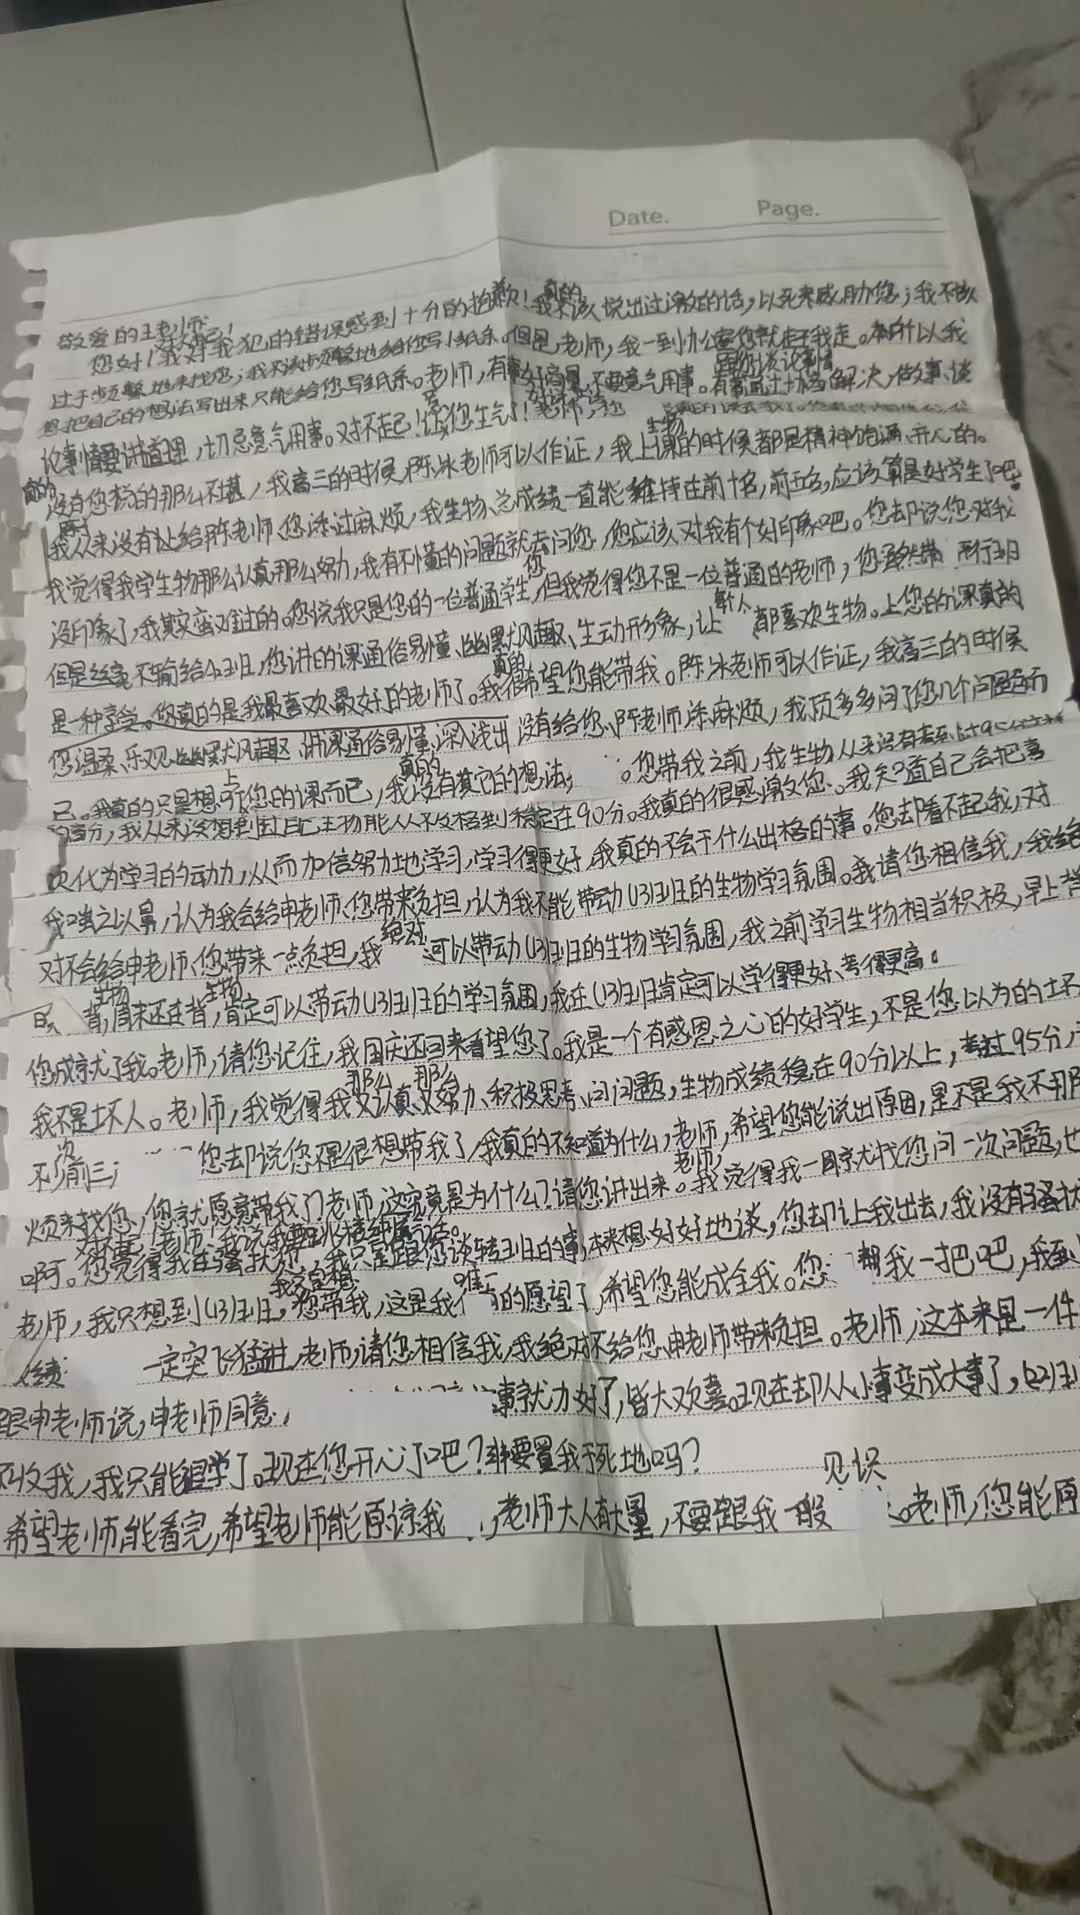 Date. Page.
敬爱的王老师：
您好！我对我犯的错误感到十分的抱歉！我真的不该说出过激的话，以死来威胁您；我不该
过于频繁地来找您；我不该频繁地给您写小纸条。但是，老师，我一到办公室您就赶我走。所以我
想把自己的想法写出来只能给您写纸条。老师，有事好商量，不要意气用事。有事通过协商解决，做事、谈
论事情要讲道理，切忌意气用事。对不起！让您生气了！老师，
真的没有您说的那么不堪，我高三的时候陈冰老师可以作证，我上生物课的时候都是精神饱满、开心的。
我从来没有让给陈老师、您添过麻烦，我生物、总成绩一直能维持在前十名，前五名，应该算是好学生了吧
我觉得我学生物那么认真那么努力，我有不懂的问题就去问您，您应该对我有个好印象吧。您却说您对我
没印象了，我其实蛮难过的。您说我只是您的一位普通学生，但我觉得您不是一位普通的老师，您虽然带平行班
但是丝毫不输给(42)班，您讲的课通俗易懂、幽默风趣、生动形象，让每个人都喜欢生物。上您的课真的
是一种享受。您真的是我最喜欢、最好的老师了。我真的很希望您能带我。陈冰老师可以作证，我高三的时候
您温柔、乐观、幽默风趣、讲课通俗易懂、深入浅出 没有给您、陈老师添麻烦，我顶多多问了您几个问题而
已。我真的只是想上您的课而已，我真的没有其它的想法。您带我之前，我生物从来没有考
的高分，我从来没想到过自己生物能从不及格到稳定在90分。我真的很感谢您。我知道自己会把喜
欢化为学习的动力，从而加倍努力地学习，学习得更好，我真的不会干什么出格的事。您却看不起我，对
我嗤之以鼻，认为我会给申老师、您带来负担，认为我不能带动(43)班的生物学习氛围。我请您相信我，我绝
对不会给申老师、您带来一点负担，我绝对可以带动(43)班的生物学习氛围，我之前学习生物相当积极，早上背
生物，周末还在背生物，肯定可以带动(43)班的学习氛围，我在(43)班肯定可以学得更好、考得更高。
您成就了我。老师，请您记住，我国庆还回来看望您了。我是一个有感恩之心的好学生，不是您以为的坏
我不是坏人。老师，我觉得我那么认真、那么努力、积极思考、问问题，生物成绩稳在90分以上，考过95分，
次前三， 您却说您不是很想带我了，我真的不知道为什么，老师，希望您能说出原因，是不是我不
烦来找您，您就愿意带我了？老师，这究竟是为什么？请您讲出来。老师，我觉得我一周就找您问一次问题，也
对不起！老师！
啊。您觉得我在骚扰您，我只是跟您谈转班的事，本来想好好地谈，您却让我出去，我没有骚扰
老师，我只想到(43)班，我只想您带我，这是我唯一的愿望了，希望您能成全我。您 帮我一把吧，我
成绩 一定突飞猛进，老师，请您相信我，我绝对不给您、申老师带来负担。老师，这本来是一件
跟申老师说，申老师同意， 事就办好了，皆大欢喜。现在却从小事变成大事了，(42)班
不收我，我只能退学了。现在您开心了吧？非要置我于死地吗？
希望老师能看完，希望老师能原谅我，老师大人有大量，不要跟我一般见识。老师，您能原